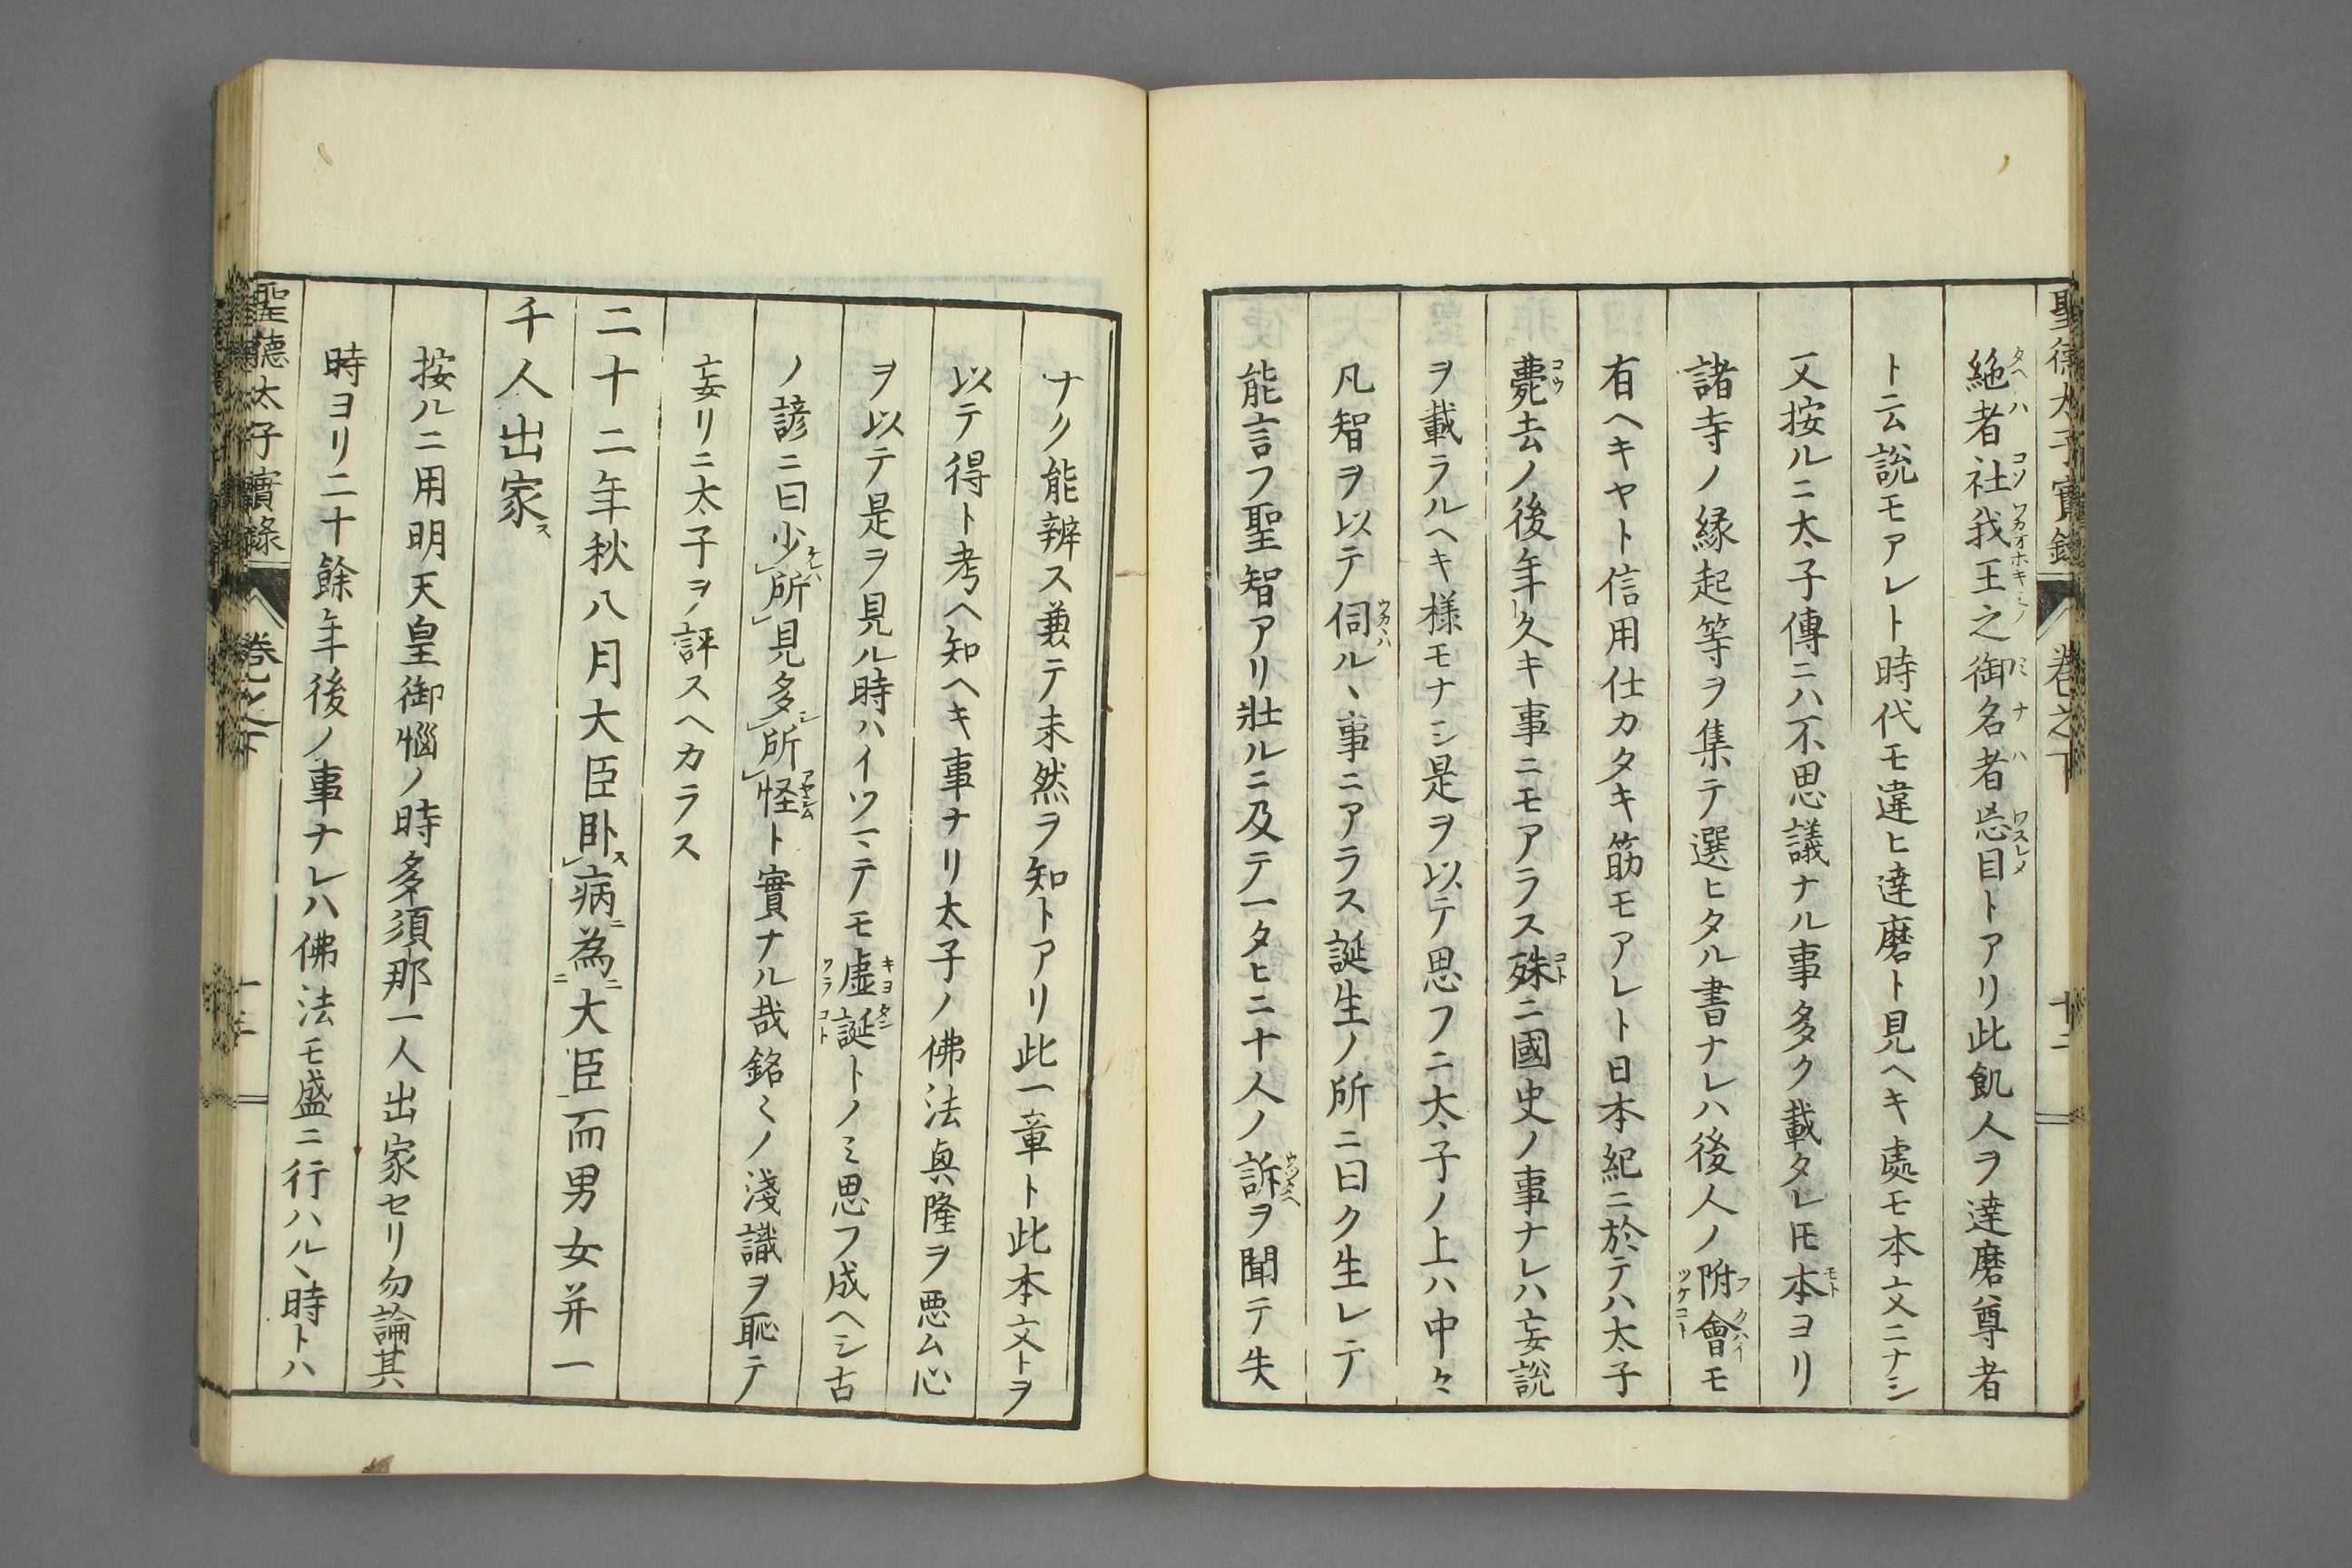 聖德太子實錄 巻之下 十二
絶者社我王之御名者忘目トアリ此飢人ヲ達磨尊者
ト云説モアレト時代モ違ヒ達磨ト見ヘキ處モ本文ニナシ
又按ルニ太子傳ニハ不思議ナル事多ク載タレ𪜈本ヨリ
諸寺ノ縁起等ヲ集テ選ヒタル書ナレハ後人ノ附會モ
有ヘキヤト信用仕カタキ筋モアレト日本紀ニ於テハ太子
薨去ノ後年久キ事ニモアラス殊ニ國史ノ事ナレハ妄説
ヲ載ラルヘキ様モナシ是ヲ以テ思フニ太子ノ上ハ中々
凡智ヲ以テ伺ルヽ事ニアラス誕生ノ所ニ曰ク生レテ
能言フ聖智アリ壯ルニ及テ一タヒニ十人ノ訴ヲ聞テ失
ナク能辨ス兼テ未然ヲ知トアリ此一章ト此本文トヲ
以テ得ト考ヘ知ヘキ事ナリ太子ノ佛法興隆ヲ悪ム心
ヲ以テ是ヲ見ル時ハイツマテモ虚誕トノミ思フ成ヘシ古
ノ諺ニ曰少所見多所怪ト實ナル哉銘ミノ淺識ヲ恥テ
妄リニ太子ヲ評スヘカラス
二十二年秋八月大臣臥病為大臣而男女并一
千人出家ス
按ルニ用明天皇御悩ノ時多須那一人出家セリ勿論其
時ヨリ二十餘年後ノ事ナレハ佛法モ盛ニ行ハルヽ時トハ
聖德太子實錄 巻之下 十三